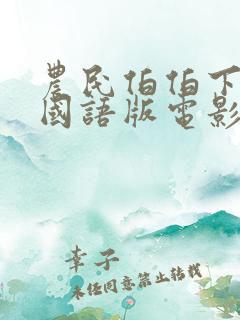 農民伯伯下
國語版電影
幸子
未经同意禁止转载